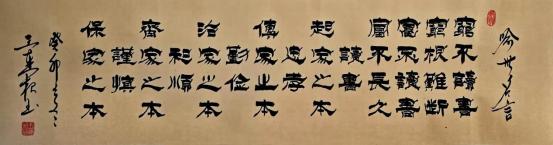 喻世名言
窮不讀書
窮根難斷
富不讀書
富不長久
讀書
起家之本
忠孝
傳家之本
勤儉
治家之本
和順
齊家之本
謹慎
保家之本
癸卯
王